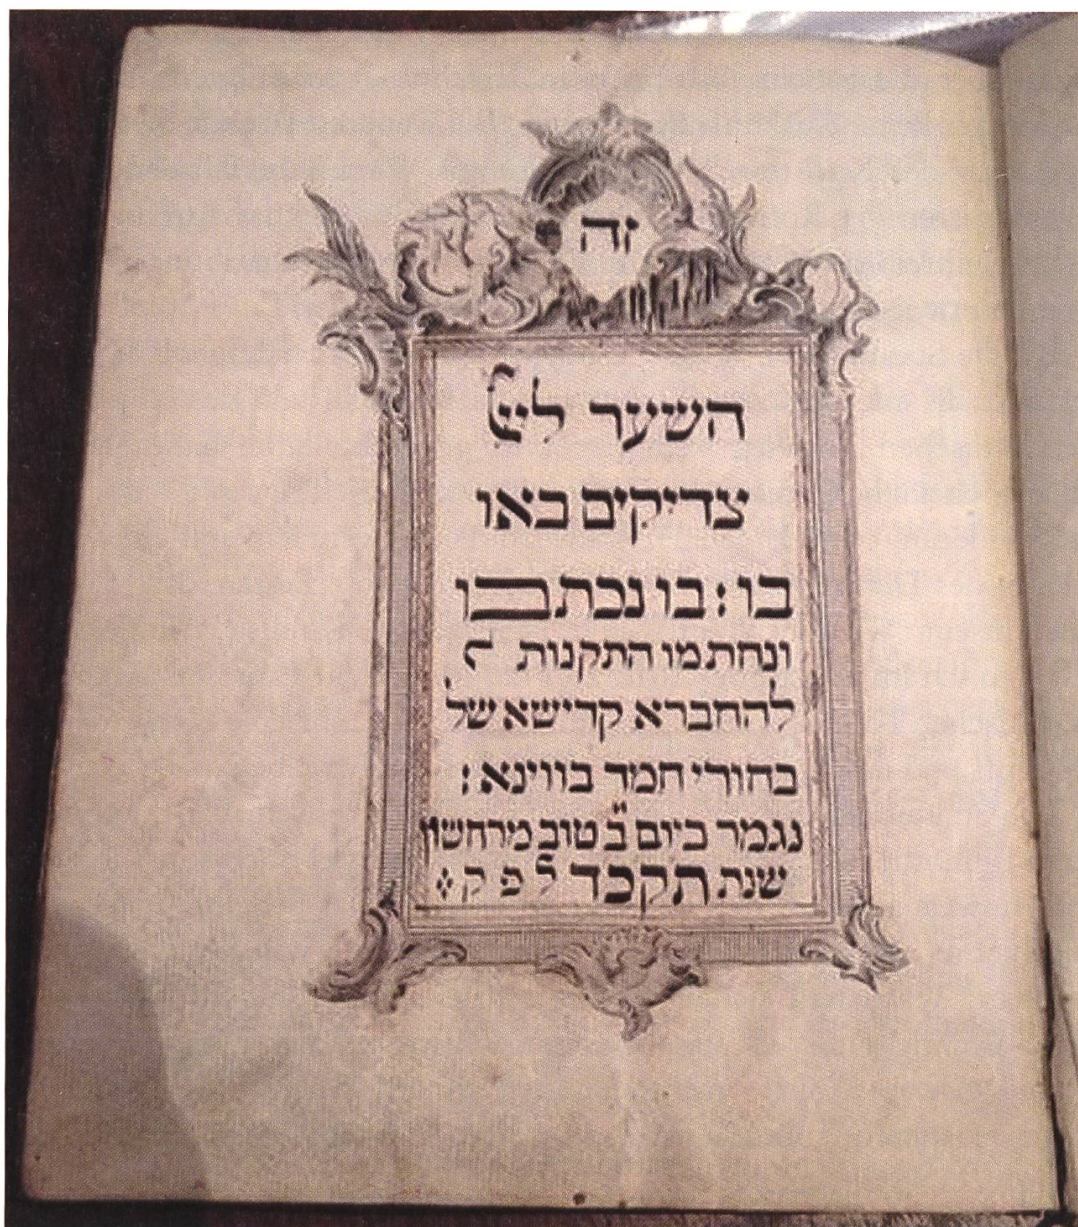 זה
השער ליי
צדיקים באו
בו : בו נכתבו
ונחתמו התקנות
להחברא קדישא של
בחורי חמד בווינא :
נגמר ביום ב̈ טוב מרחשון
שנת תקכד ל פ ק